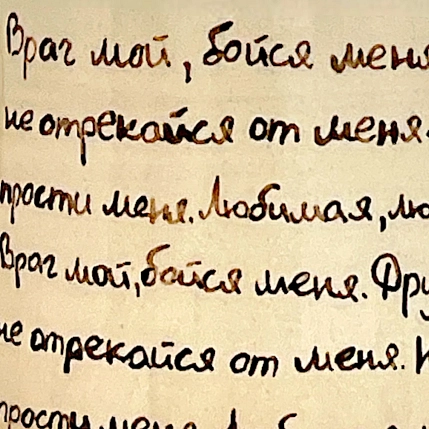 Враг мой, бойся меня
не отрекайся от меня.
прости меня. Любимая, лю
Враг мой, бойся меня. Дру
не отрекайся от меня.
прости меня.